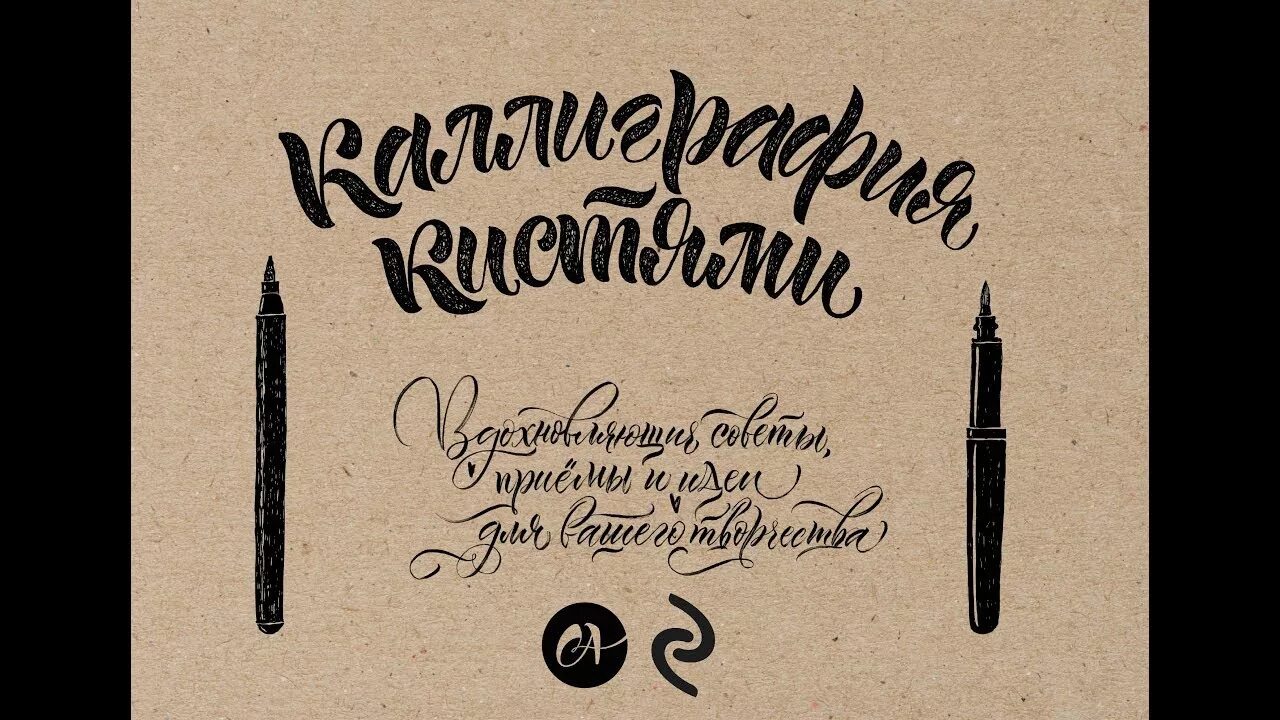 Каллиграфия
кистями
Вдохновляющия советы,
приёмы и идеи
для вашего творчества